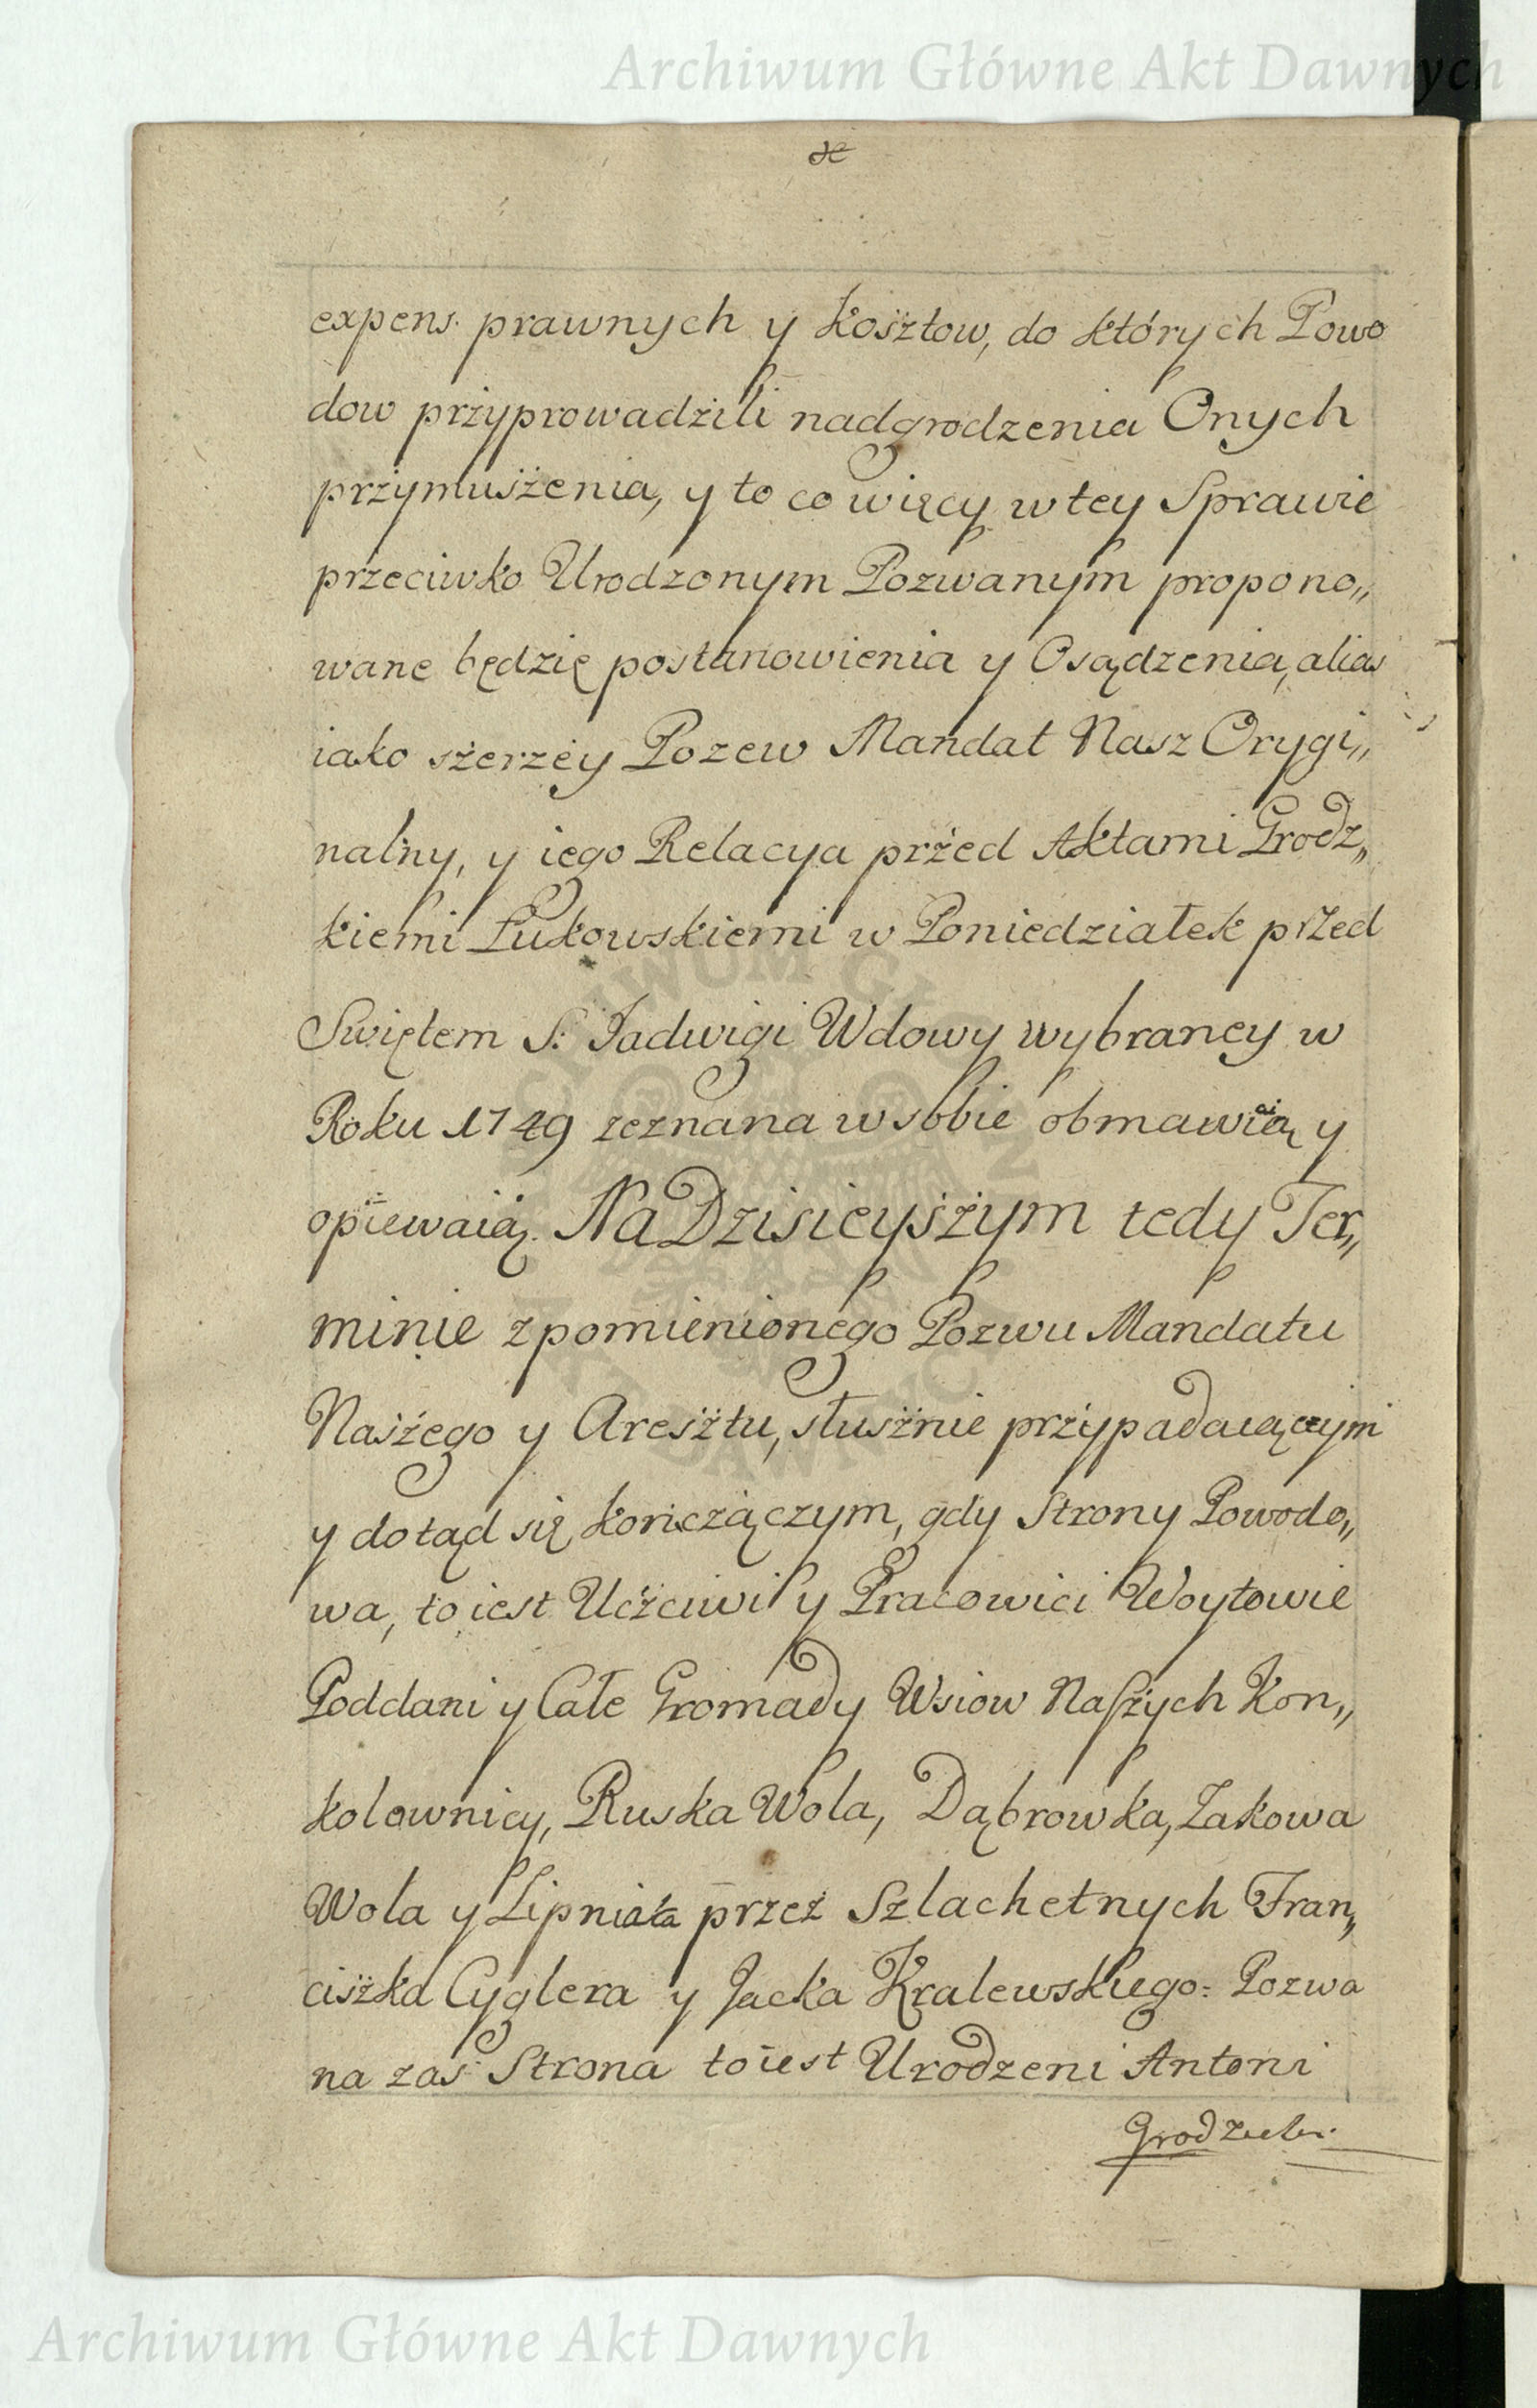 Archiwum Główne Akt Dawnych
expens. prawnych y kosztow, do których Powo
dow przyprowadzili nadgrodzenia Onych
przymuszenia, y to co więcy w tey Sprawie
przeciwko Urodzonym Pozwanym propono„
wane będzię postanowienia y Osądzenia, alias
iako szerzey Pozew Mandat Nasz Orygi„
nalny, y iego Relacya przed Aktami Grodz„
kiemi Łukowskiemi w Poniedziałek przed
Swiętem S. Jadwigi Wdowy wybraney w
Roku 1749 zeznana w sobie obmawiaią y
opiewaią. Na Dzisieyszym tedy Ter„
minie z pomienionego Pozwu Mandatu
Naszego y Aresztu, słusznie przypadaiączym
y dotąd się kończączym, gdy Strony Powodo„
wa, to iest Uczciwi y Pracowici Woytowie
Poddani y Całe Gromady Wsiow Naszych Kon„
kolownicy, Ruska Wola, Dąbrowka, Zakowa
Wola y Lipniała przez Szlachetnych Fran„
ciszka Cyglera y Jacka Kralewskiego: Pozwa
na zas Strona to iest Urodzeni Antoni
Archiwum Główne Akt Dawnych